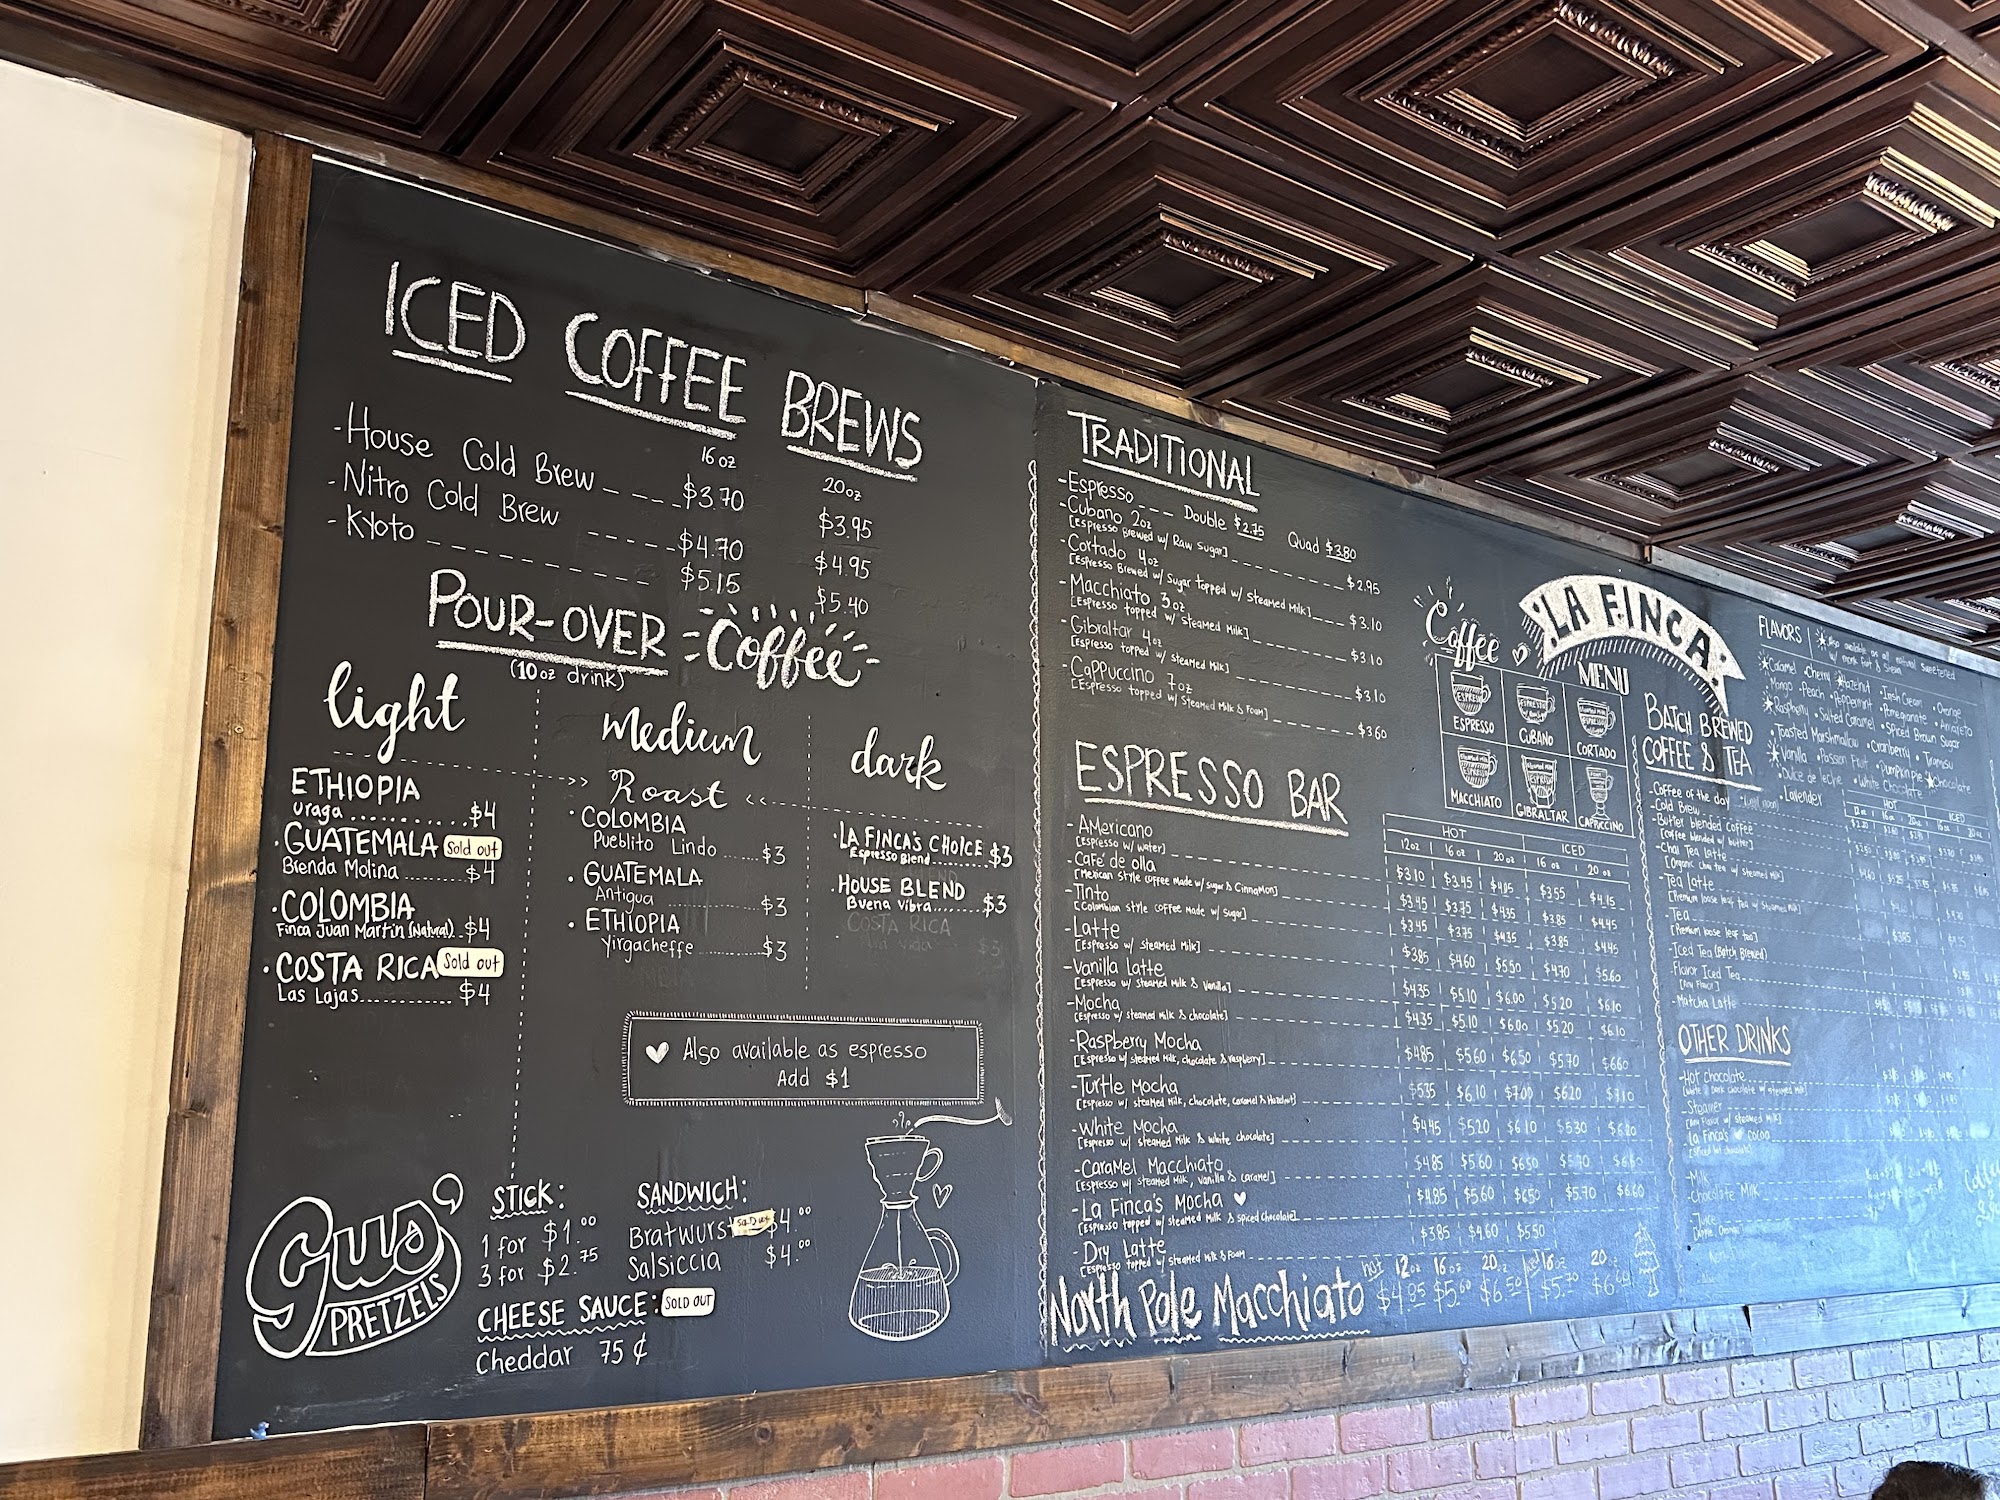 ICED COFFEE BREWS
16 oz 20 oz
-House Cold Brew $3.70 $3.95
-Nitro Cold Brew $4.70 $4.95
-Kyoto $5.15 $5.40
POUR-OVER Coffee
(10 oz drink)
light medium dark
Roast
ETHIOPIA
Uraga $4
·GUATEMALA Sold out
Brenda Molina $4
·COLOMBIA
Finca Juan Martin (Natural) $4
·COSTA RICA Sold out
Las Lajas $4
·COLOMBIA
Pueblito Lindo $3
·GUATEMALA
Antigua $3
·ETHIOPIA
Yirgacheffe $3
·LA FINCA'S CHOICE $3
Espresso Blend
·HOUSE BLEND $3
Buena Vibra
COSTA RICA
Also available as espresso
Add $1
Gus'
PRETZELS
STICK:
1 for $1.00
3 for $2.75
SANDWICH:
Bratwurst SOLD OUT $4.00
Salsiccia $4.00
CHEESE SAUCE: SOLD OUT
Cheddar 75 ¢
TRADITIONAL
-Espresso Double $2.75 Quad $3.80
-Cubano 2oz $2.95
[Espresso Brewed w/ Raw Sugar]
-Cortado 4oz $3.10
[Espresso Brewed w/ Sugar topped w/ Steamed Milk]
-Macchiato 3oz $3.10
[Espresso topped w/ Steamed Milk]
-Gibraltar 4oz $3.10
[Espresso topped w/ Steamed Milk]
-Cappuccino 7oz $3.60
[Espresso topped w/ Steamed Milk & Foam]
ESPRESSO BAR
HOT ICED
12oz 16 oz 20 oz 16 oz 20 oz
-Americano $3.10 $3.45 $4.05 $3.55 $4.15
[Espresso w/ Water]
-Café de olla $3.45 $3.75 $4.35 $3.85 $4.45
[Mexican style coffee made w/ sugar & Cinnamon]
-Tinto $3.45 $3.75 $4.35 $3.85 $4.45
[Colombian style coffee made w/ sugar]
-Latte $3.85 $4.60 $5.50 $4.70 $5.60
[Espresso w/ steamed Milk]
-Vanilla Latte $4.35 $5.10 $6.00 $5.20 $6.10
[Espresso w/ steamed Milk & Vanilla]
-Mocha $4.35 $5.10 $6.00 $5.20 $6.10
[Espresso w/ steamed milk & chocolate]
-Raspberry Mocha $4.85 $5.60 $6.50 $5.70 $6.60
[Espresso w/ steamed milk, chocolate & raspberry]
-Turtle Mocha $5.35 $6.10 $7.00 $6.20
[Espresso w/ steamed Milk, chocolate, caramel & Hazelnut]
-White Mocha $4.45 $5.20 $6.10 $5.30 $6.20
[Espresso w/ steamed Milk & white chocolate]
-Caramel Macchiato $4.85 $5.60 $6.50 $5.70
[Espresso w/ steamed Milk, vanilla & caramel]
-La Finca's Mocha $4.85 $5.60 $6.50 $5.70 $6.60
[Espresso topped w/ steamed Milk & spiced chocolate]
-Dry Latte $3.85 $4.60 $5.50
[Espresso topped w/ steamed Milk & Foam
hot 12oz 16oz 20oz 16oz 20
North Pole Macchiato $4.85 $5.60 $6.50
Coffee
LA FINCA
MENU
ESPRESSO CUBANO CORTADO
MACCHIATO GIBRALTAR CAPPUCCINO
BATCH BREWED
COFFEE & TEA
HOT ICED
-Coffee of the day
-Cold Brew
-Butter blended Coffee
[Coffee blended w/ butter]
-Chai Tea Latte
[Organic chai tea w/ steamed Milk]
-Tea Latte
[Premium loose leaf tea w/ steamed Milk]
-Tea
[Premium loose leaf tea]
-Iced Tea (Batch Brewed)
-Flavor Iced Tea
[Any Flavor]
-Matcha Latte
OTHER DRINKS
-Hot Chocolate
-Steamer
[Any Flavor w/ steamed Milk]
-La Finca's cocoa
-Milk
-Chocolate Milk
FLAVORS
Also available as all natural sweetened
w/ monk fruit & stevia
Caramel ·Cherry ·Hazelnut ·Irish Cream ·Orange
Mango ·Peach ·Peppermint ·Pomegranate ·Amaretto
Raspberry ·Salted Caramel ·Spiced Brown Sugar
·Toasted Marshmallow ·Cranberry ·Tiramisu
Vanilla ·Passion Fruit ·Pumpkin Pie ·Chocolate
·Dulce de leche ·White Chocolate
·Lavender